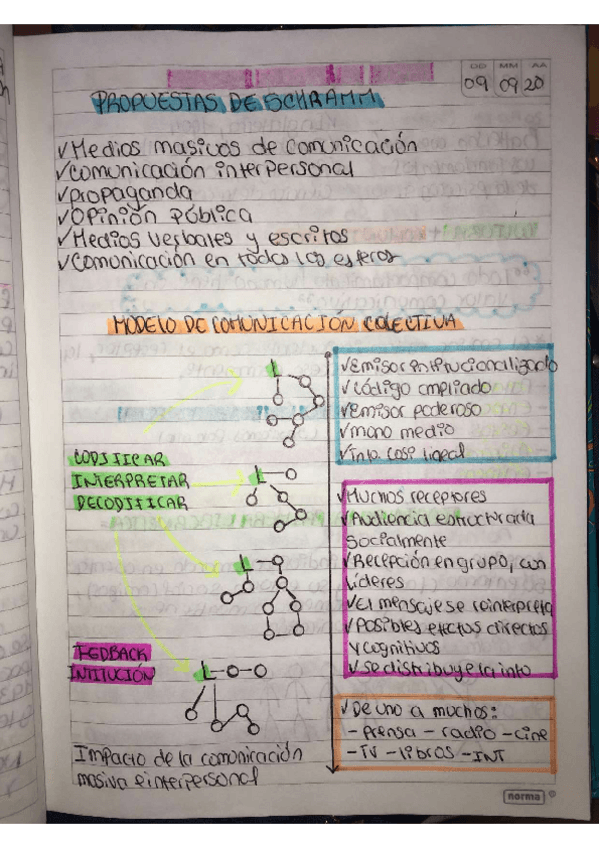 DD MM AA
09 09 20
PROPUESTAS DE SCHRAMM
✓Medios masivos de comunicación
✓comunicación interpersonal
✓propaganda
✓Opinión pública
✓Medios verbales y escritos
✓Comunicación en todas las esferas
MODELO DE COMUNICACIÓN COLECTIVA
✓Emisor intitucionalizado
✓código ampliado
✓Emisor poderoso
✓mono medio
✓info. casi lineal
CODIFICAR
INTERPRETAR
DECODIFICAR
L
L
L
L
✓Muchos receptores
✓Audiencia estructurada
socialmente
✓Recepción en grupo, con
líderes
✓El mensaje se reinterpreta
✓Posibles efectos directos
y cognitivos
✓se distribuye la info
FEDBACK
INTITUCIÓN
✓De uno a muchos:
- prensa - radio - cine
- TV - libros - INT
Impacto de la comunicación
masiva e interpersonal
norma